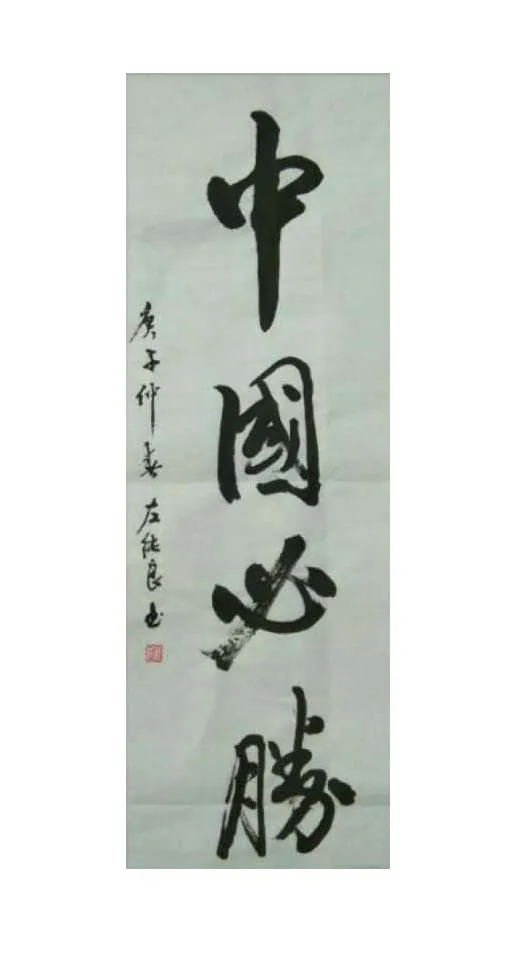 中國必勝
庚子仲春 左能良书